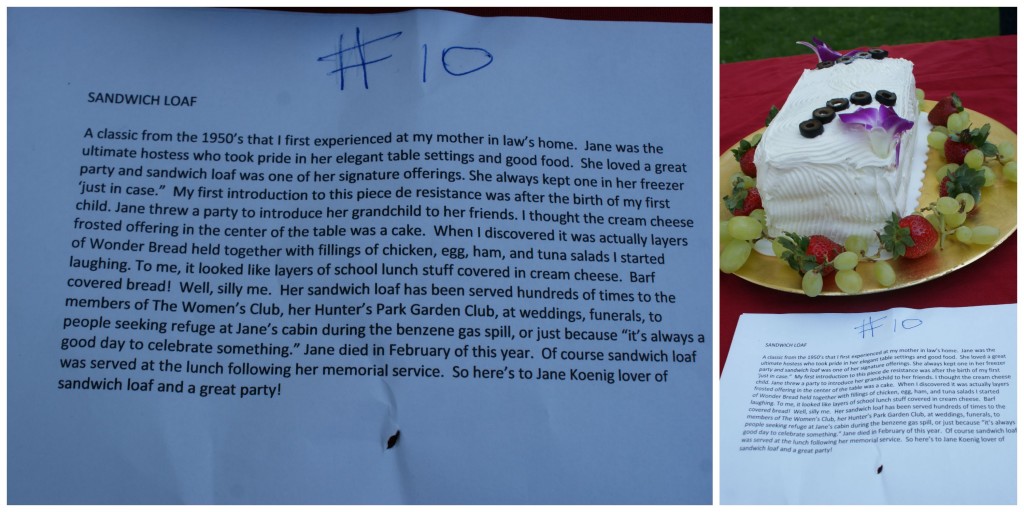 #10
SANDWICH LOAF
A classic from the 1950's that I first experienced at my mother in law's home. Jane was the
ultimate hostess who took pride in her elegant table settings and good food. She loved a great
party and sandwich loaf was one of her signature offerings. She always kept one in her freezer
'just in case." My first introduction to this piece de resistance was after the birth of my first
child. Jane threw a party to introduce her grandchild to her friends. I thought the cream cheese
frosted offering in the center of the table was a cake. When I discovered it was actually layers
of Wonder Bread held together with fillings of chicken, egg, ham, and tuna salads I started
laughing. To me, it looked like layers of school lunch stuff covered in cream cheese. Barf
covered bread! Well, silly me. Her sandwich loaf has been served hundreds of times to the
members of The Women's Club, her Hunter's Park Garden Club, at weddings, funerals, to
people seeking refuge at Jane's cabin during the benzene gas spill, or just because "it's always a
good day to celebrate something." Jane died in February of this year. Of course sandwich loaf
was served at the lunch following her memorial service. So here's to Jane Koenig lover of
sandwich loaf and a great party!
#10
SANDWICH LOAF
A classic from the 1950's that I first experienced at my mother in law's home. Jane was the
ultimate hostess who took pride in her elegant table settings and good food. She loved a great
party and sandwich loaf was one of her signature offerings. She always kept one in her freezer
'just in case." My first introduction to this piece de resistance was after the birth of my first
child. Jane threw a party to introduce her grandchild to her friends. I thought the cream cheese
frosted offering in the center of the table was a cake. When I discovered it was actually layers
of Wonder Bread held together with fillings of chicken, egg, ham, and tuna salads I started
laughing. To me, it looked like layers of school lunch stuff covered in cream cheese. Barf
covered bread! Well, silly me. Her sandwich loaf has been served hundreds of times to the
members of The Women's Club, her Hunter's Park Garden Club, at weddings, funerals, to
people seeking refuge at Jane's cabin during the benzene gas spill, or just because "it's always
good day to celebrate something." Jane died in February of this year. Of course sandwich loaf
was served at the lunch following her memorial service. So here's to Jane Koenig lover of
sandwich loaf and a great party!